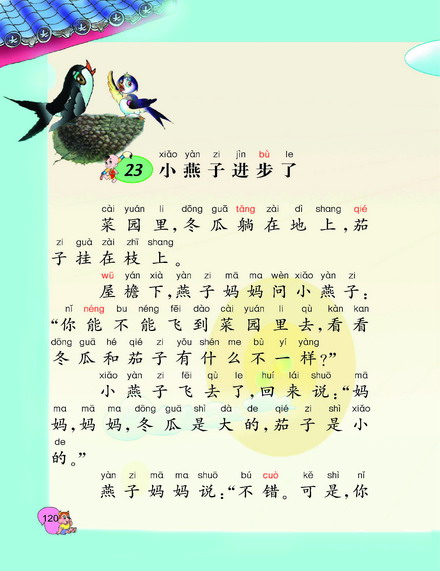 xiǎo yàn zi jìn bù le
23 小燕子进步了
cài yuán li dōng guā tǎng zài dì shang qié
菜园里,冬瓜躺在地上,茄
zi guà zài zhī shang
子挂在枝上。
wū yán xià yàn zi mā ma wèn xiǎo yàn zi
屋檐下,燕子妈妈问小燕子:
nǐ néng bu néng fēi dào cài yuán li qù kàn kan
“你能不能飞到菜园里去,看看
dōng guā hé qié zi yǒu shén me bù yí yàng
冬瓜和茄子有什么不一样?”
xiǎo yàn zi fēi qù le huí lái shuō mā
小燕子飞去了,回来说:“妈
ma mā ma dōng guā shì dà de qié zi shì xiǎo
妈,妈妈,冬瓜是大的,茄子是小
de
的。”
yàn zi mā ma shuō bú cuò kě shì nǐ
燕子妈妈说:“不错。可是,你
120